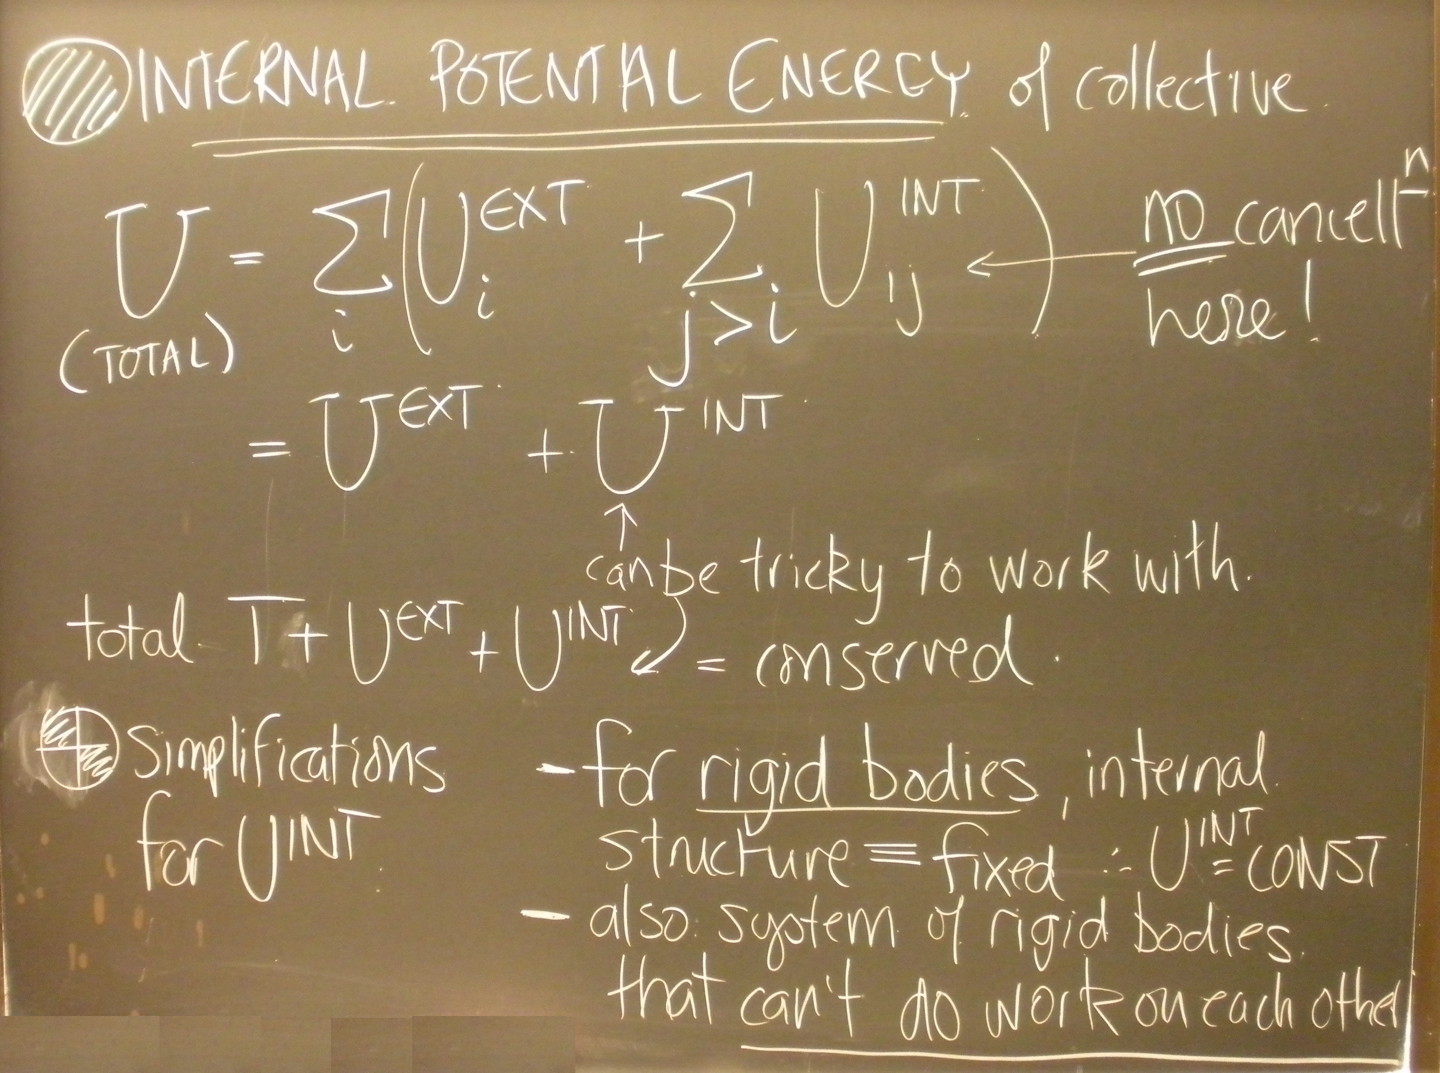 INTERNAL POTENTIAL ENERGY of collective
U (TOTAL) = Σ_i ( U_i^EXT + Σ_{j>i} U_ij^INT ) ← no cancellⁿ here!
= U^EXT + U^INT
↑
can be tricky to work with.
total T + U^EXT + U^INT = conserved.
Simplifications
for U^INT
- for rigid bodies, internal
structure ≡ fixed ∴ U^INT = CONST
- also system of rigid bodies
that can't do work on each other